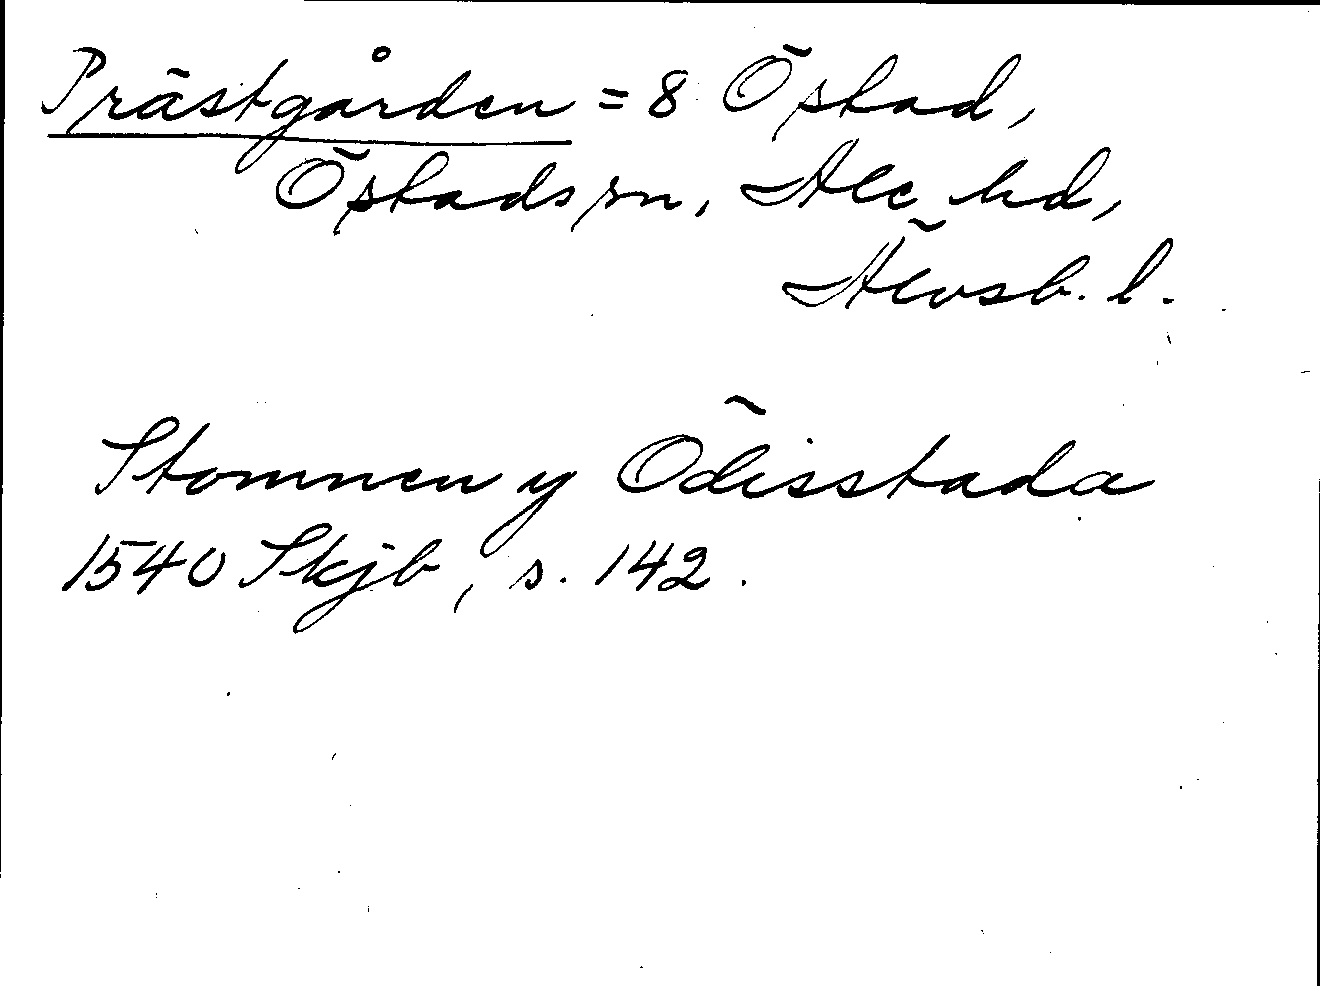 Prästgården = 8 Östad,
Östads sn, Ale hd,
Älvsb. l.
Stomnen y Ödisstada
1540 Skjb, s. 142.